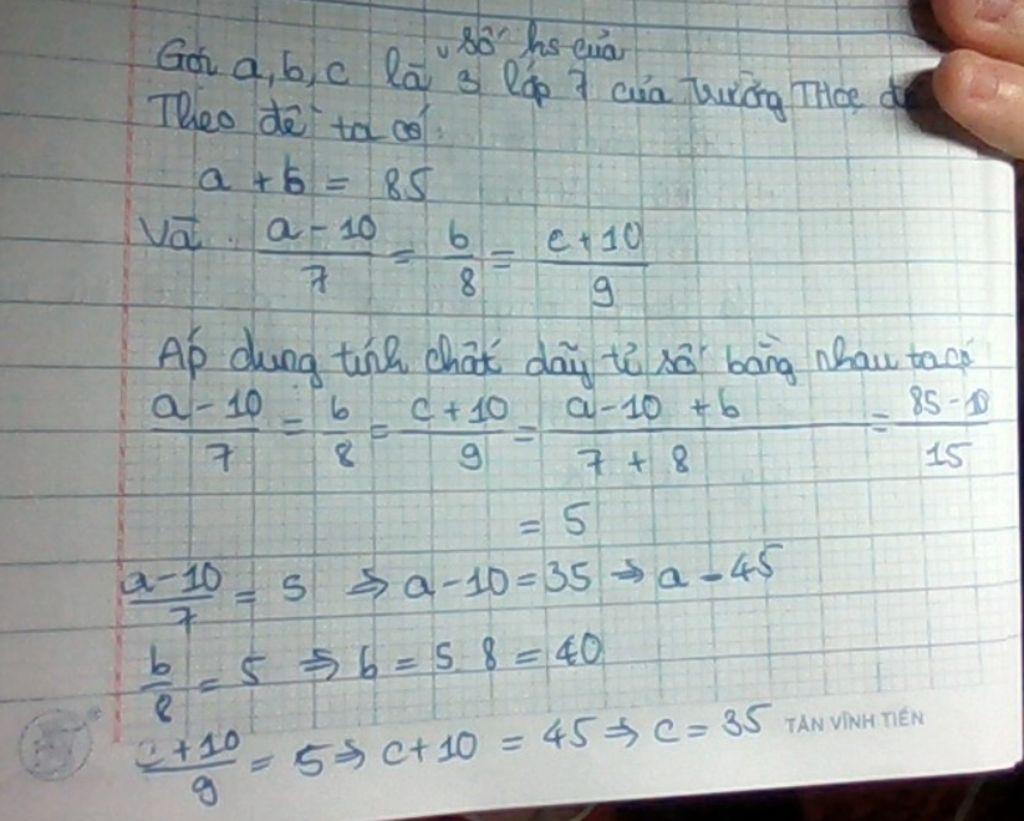 số hs của
Gọi a, b, c là 3 lớp 7 của Trường THCS
Theo đề ta có:
a + b = 85
Và a - 10 / 7 = b / 8 = c + 10 / 9
Áp dụng tính chất dãy tỉ số bằng nhau ta có
a - 10 / 7 = b / 8 = c + 10 / 9 = a - 10 + b / 7 + 8 = 85 - 10 / 15
= 5
a - 10 / 7 = 5 ⇒ a - 10 = 35 ⇒ a = 45
b / 8 = 5 ⇒ b = 5 8 = 40
c + 10 / 9 = 5 ⇒ c + 10 = 45 ⇒ c = 35
TÂN VĨNH TIẾN